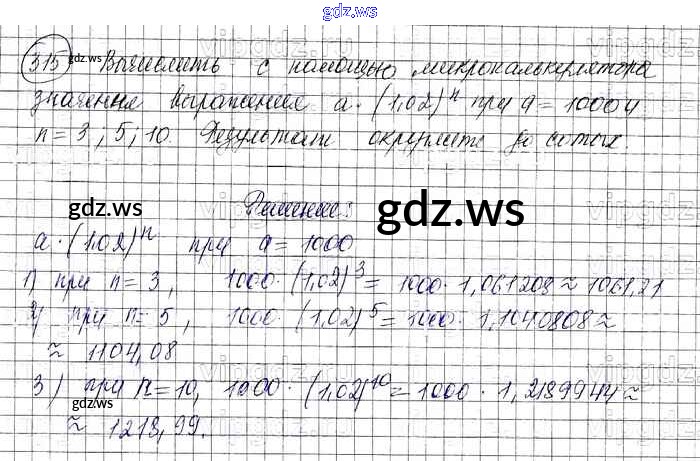 gdz.ws
315 gdz.ws Вычислить с помощью микрокалькулятора
значения выражения a·(1,02)ⁿ при a = 1000 и
n = 3; 5; 10. Результат округлите до сотых.
gdz.ws Решение: gdz.ws
a·(1,02)ⁿ при a = 1000
1) при n = 3, 1000·(1,02)³ = 1000·1,061208 ≈ 1061,21
2) при n = 5, 1000·(1,02)⁵ = 1000·1,1040808 ≈
≈ 1104,08
3) при n = 10, 1000·(1,02)¹⁰ = 1000·1,2189944 ≈
gdz.ws
≈ 1218,99.